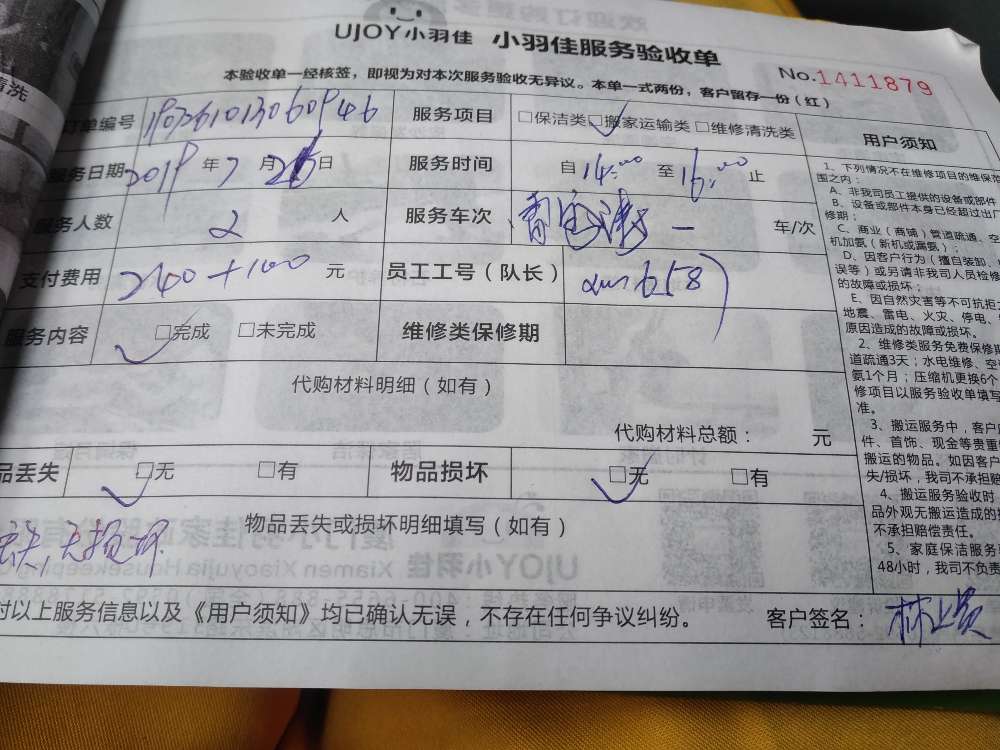 UJOY小羽佳 小羽佳服务验收单
No.1411879
本验收单一经核签，即视为对本次服务验收无异议。本单一式两份，客户留存一份（红）
清洗
订单编号
服务项目 □保洁类 □搬家运输类 □维修清洗类
服务日期 2019 年 7 月 日
服务时间 自 14:00 至 16:00 止
服务人数 2 人
服务车次 一 车/次
支付费用 240+100 元
员工工号（队长）
服务内容 □完成 □未完成
维修类保修期
代购材料明细（如有）
代购材料总额： 元
品丢失 □无 □有
物品损坏 □无 □有
物品丢失或损坏明细填写（如有）
丢失,无损坏
对以上服务信息以及《用户须知》均已确认无误，不存在任何争议纠纷。
客户签名：
用户须知
1、下列情况不在维修项目的维保范
围之内：
A、非我司员工提供的设备或部件
B、设备或部件本身已经超过出厂
修期；
C、商业（商铺）管道疏通、空
机加氨（新机或漏氨）；
D、因客户行为（擅自装卸、
误等）或另请非我司人员检修
的故障或损坏；
E、因自然灾害等不可抗拒
地震、雷电、火灾、停电、
原因造成的故障或损坏。
2、维修类服务免费保修期
道疏通3天；水电维修、空
氨1个月；压缩机更换6个
修项目以服务验收单填写
准。
3、搬运服务中，客户
件、首饰、现金等贵重
搬运的物品。如因客户
失/损坏，我司不承担赔
4、搬运服务验收时
品外观无搬运造成的损
不承担赔偿责任。
5、家庭保洁服务
48小时，我司不负责